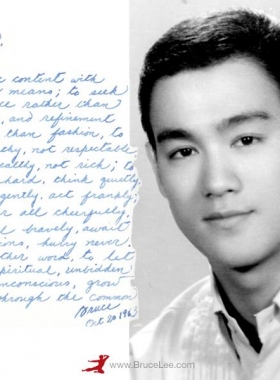 e content with
means; to seek
ce rather than
, and refinement
than fashion, to
thy, not respectable
ealthy, not rich; to
hard, think quietly,
gently, act frankly;
r all cheerfully,
bravely, await
ions, hurry never.
ther word, to let
piritual, unbidden
nconscious, grow
through the common
Bruce
Oct 20 196
www.BruceLee.com